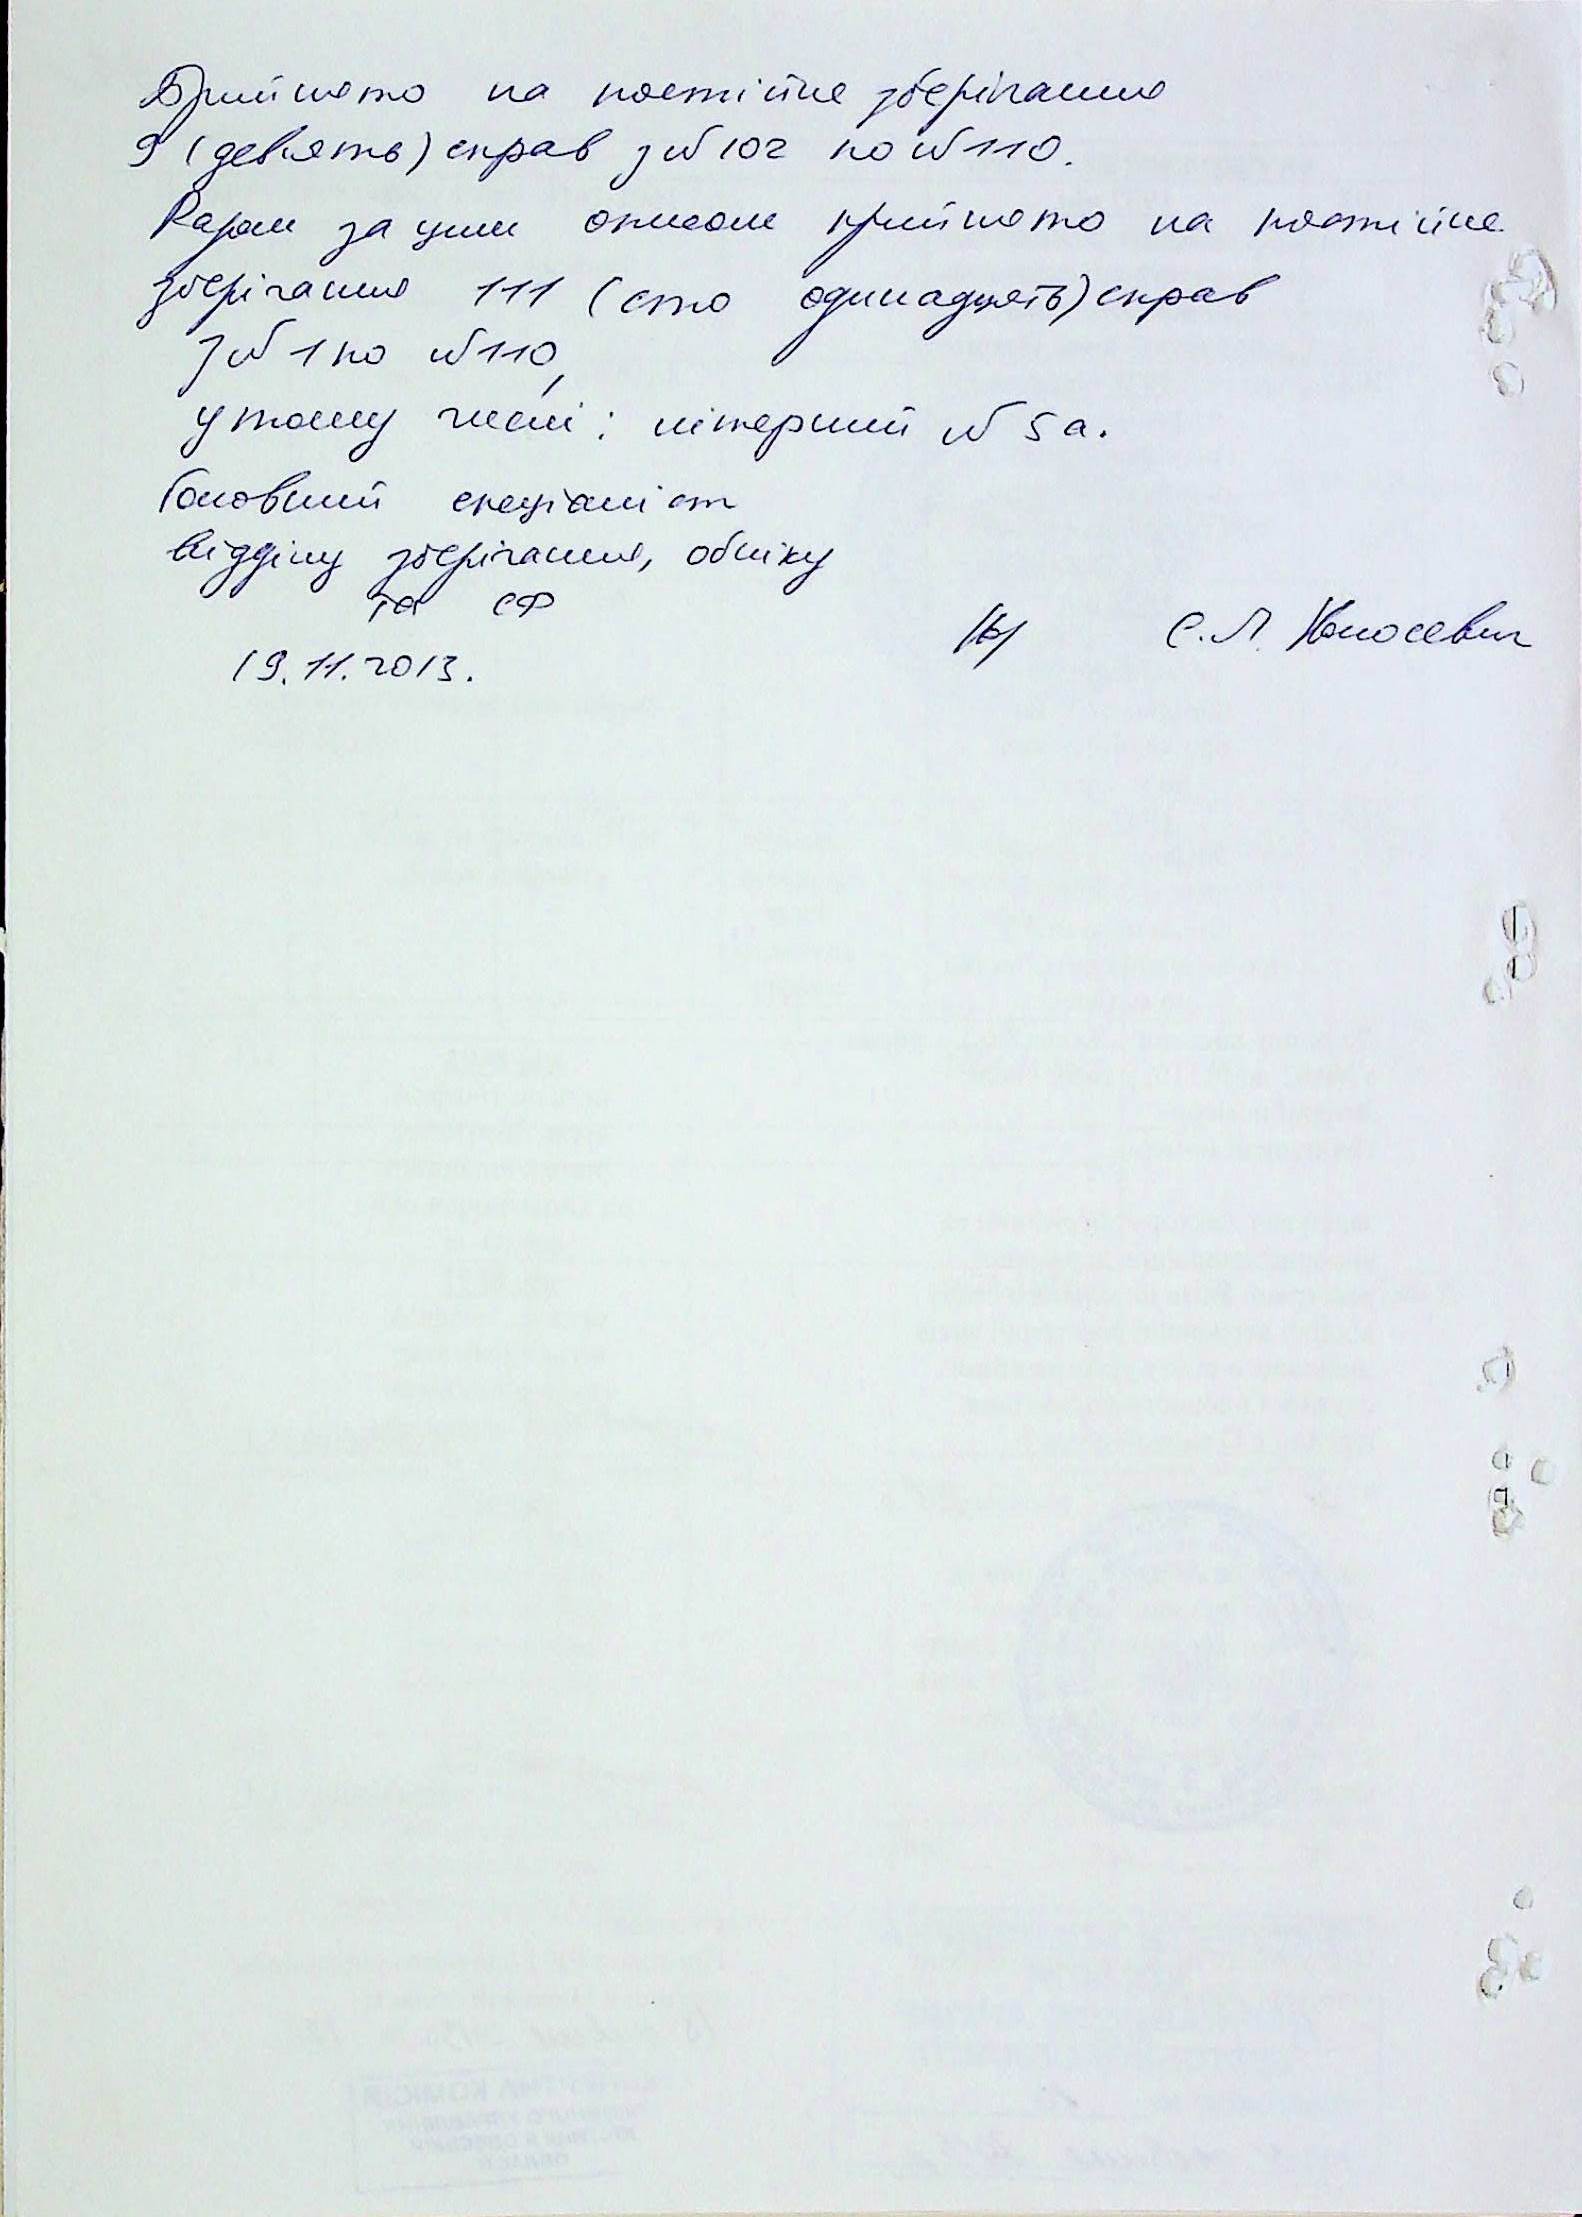 Прийнято на постійне зберігання
9 (дев'ять) справ з №102 по №110.
Разом за цим описом прийнято на постійне
зберігання 111 (сто одинадцять) справ
з №1 по №110,
у тому числі: літерний №5а.
Головний спеціаліст
відділу зберігання, обліку
та СФ
С.Л.
19.11.2013.